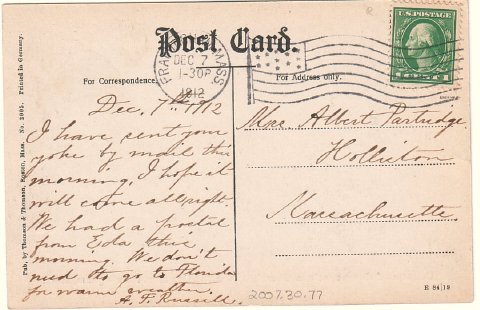 Post Card.
For Correspondence.
For Address only.
U.S. POSTAGE
DEC 7
1-30P
1912
MASS.
Dec. 7th 1912
I have sent your
yoke by mail this
morning, I hope it
will come allright
We had a postal
from Eda this
morning. We don't
need to go to Florida
for warm weather.
A. F. Russell.
Mrs Albert Partridge
Holliston
Massachusetts.
Pub. by Thomson & Thomson, Boston, Mass. No. 2005. Printed in Germany.
2007.30.77
E 84|19